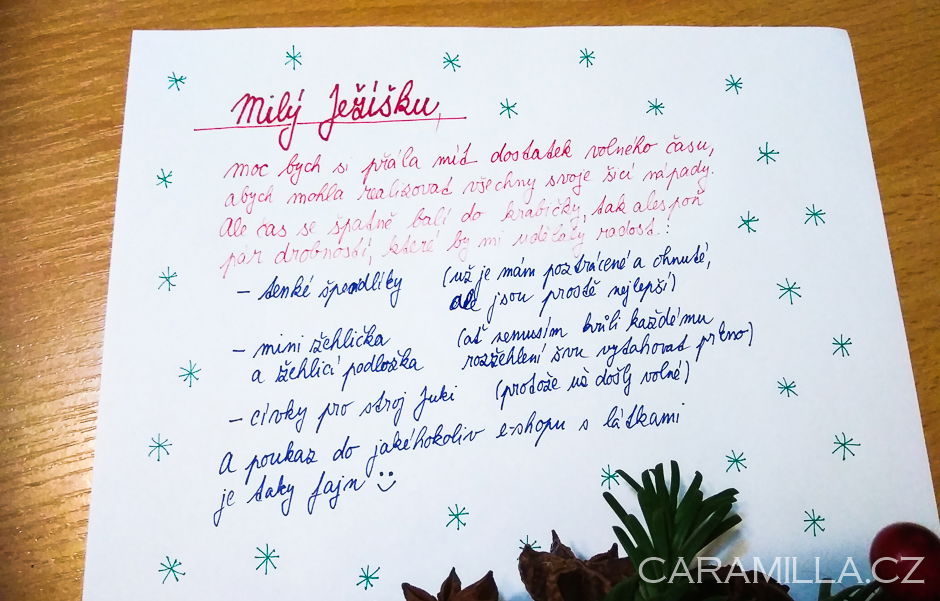 Milý Ježíšku,
moc bych si přála mít dostatek volného času,
abych mohla realizovat všechny svoje šicí nápady.
Ale čas se špatně balí do krabičky, tak alespoň
pár drobností, které by mi udělaly radost:
- tenké špendlíky (už je mám poztrácené a ohnuté,
ale jsou prostě nejlepší)
- mini žehlička (ať nemusím kvůli každému
a žehlicí podložka rozžehlení švu vytahovat prkno)
- cívky pro stroj Juki (protože už došly volné)
A poukaz do jakéhokoliv e-shopu s látkami
je taky fajn
CARAMILLA.CZ